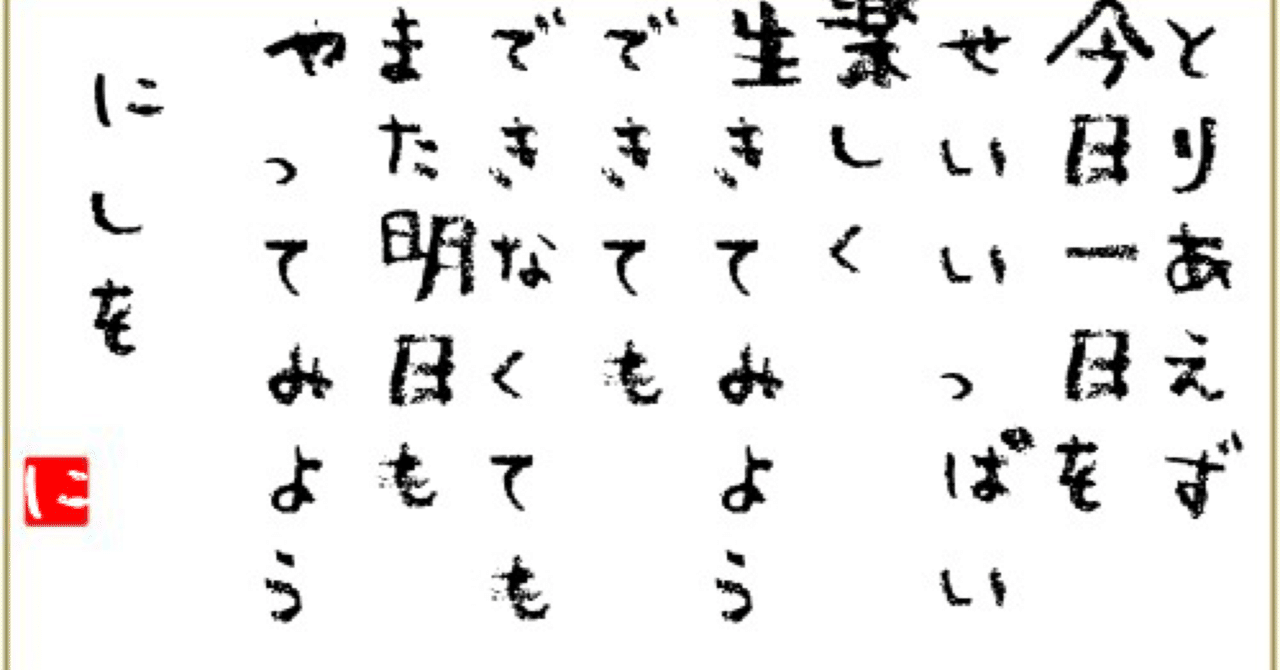 とりあえず
今日一日を
せいいっぱい
楽しく
生きてみよう
できても
できなくても
また明日も
やってみよう
にしを
に